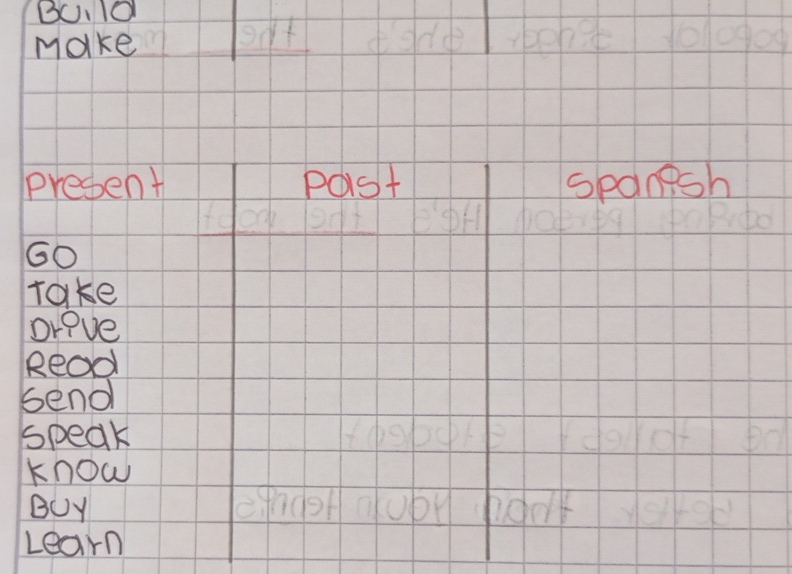 Build
Make
Present Past Spanish
Go
Take
Drive
Read
Send
Speak
Know
Buy
Learn